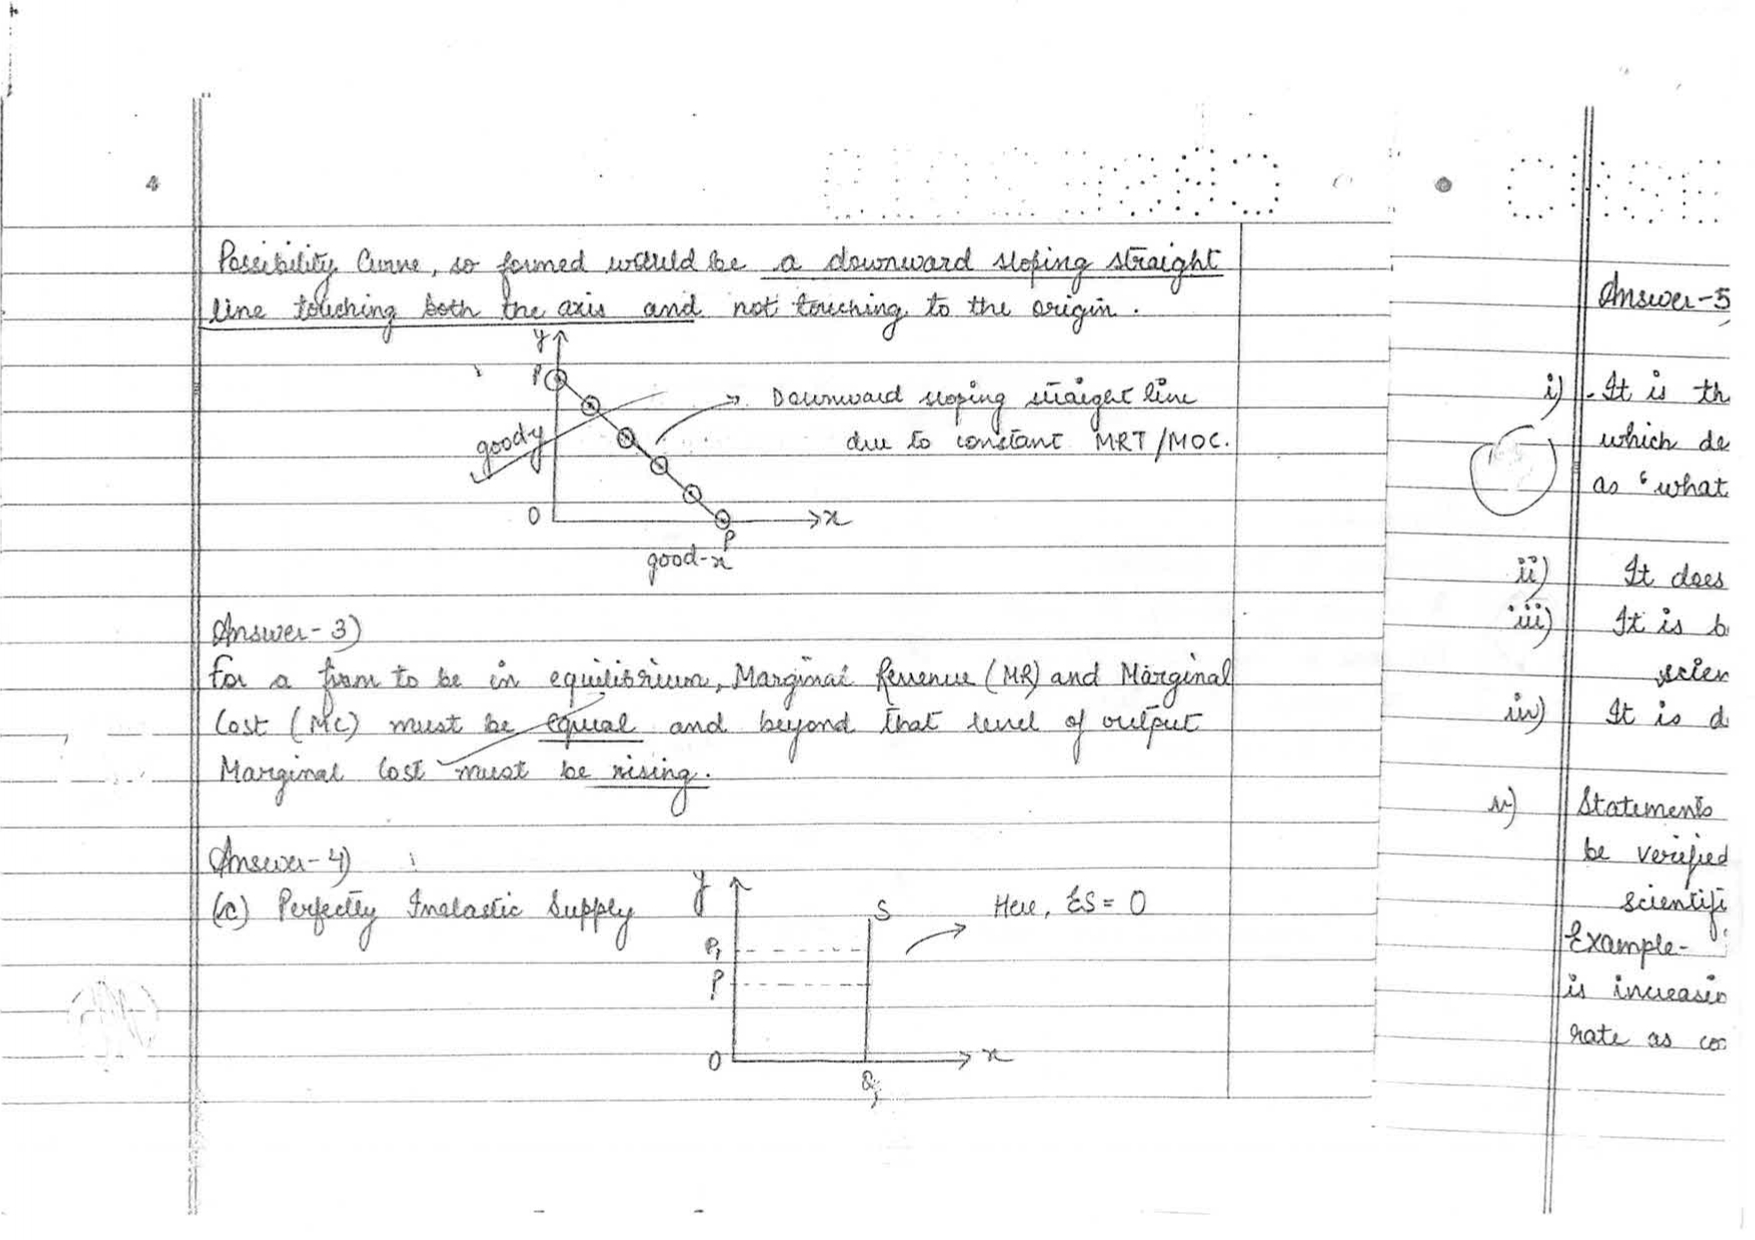 4
Possibility Curve, so formed would be a downward sloping straight
line touching both the axis and not touching to the origin.
y
P
good-y
Downward sloping straight line
due to constant MRT/MOC.
O
x
P
good-x
Answer-3)
For a firm to be in equilibrium, Marginal Revenue (MR) and Marginal
Cost (MC) must be equal and beyond that level of output
Marginal Cost must be rising.
Answer-4)
(c) Perfectly Inelastic Supply
y
S
Here, ES = 0
P1
P
O
x
Q
CBSE
Answer-5
i) It is th
which de
as "what
ii) It does
iii) It is b
scien
iv) It is d
v) Statements
be verified
scientifi
Example-
is increasin
rate as co